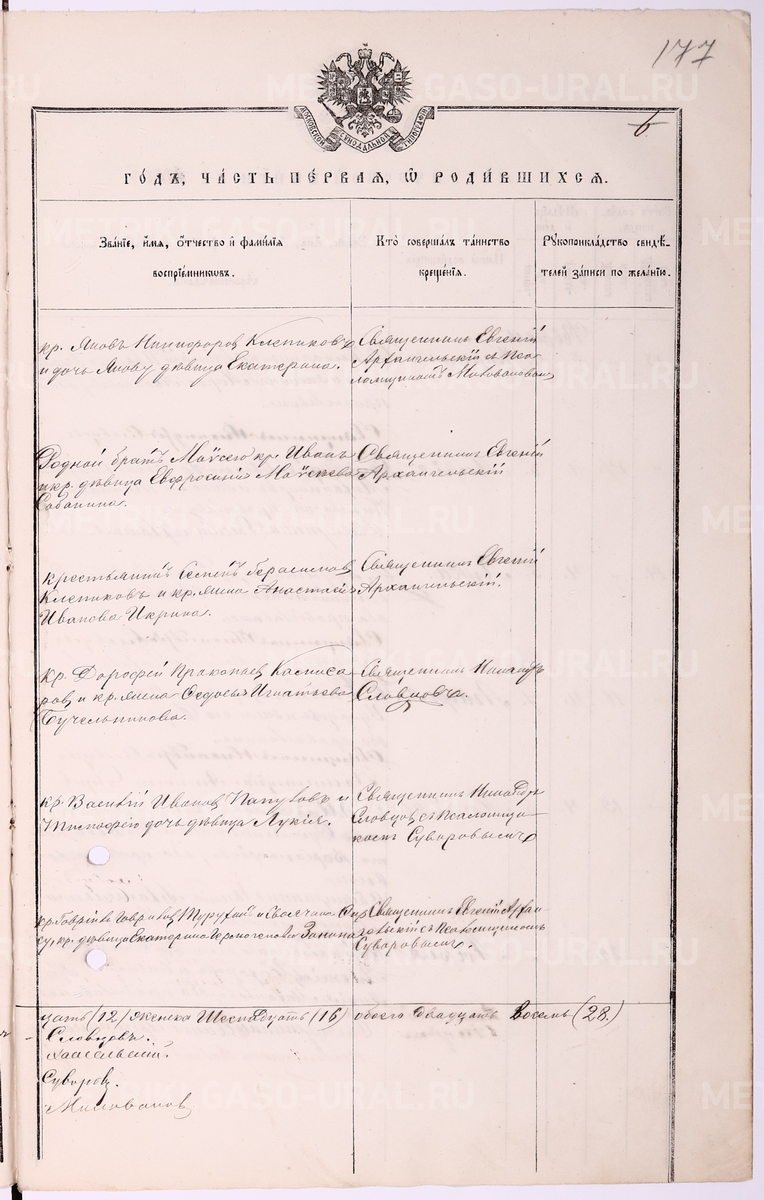 177
6
МОСКОВСКОЙ СѴНОДАЛЬНОЙ ТѴПОГРАФІИ
ГО́ДЪ, ЧА́СТЬ ПЕ́РВАЯ, Ѽ РОДИ́ВШИХСЯ.
Зва́нїе, и҆́мя, ѻ҆́тчество и҆ фами́лїя
воспрїе́мниковъ.
Кто̀ соверша́лъ та́инство
креще́нїя.
Рꙋкоприкла́дство свидѣ́-
телей за́писи по жела́нїю.
кр. Яковъ Никифоровъ Клепиковъ
и дочь Якову дѣвица Екатерина.
Священникъ Евгеній
Архангельскій съ Пса
ломщикомъ Миловановым
Родной братъ Моѵсею кр. Иванъ
и кр. дѣвица Евфросинія Моѵсеева
Сабанина.
Священникъ Евгеній
Архангельскій
крестьянинъ Семенъ Герасимовъ
Клепиковъ и кр. жена Анастасія
Иванова Икрина.
Священникъ Евгеній
Архангельскій.
кр. Дорофей Прокопьевъ Комиса
ровъ и кр. жена Ѳедосья Игнатьева
Бучельникова.
Священникъ Никандръ
Словцовъ.
кр. Василій Ивановъ и
Тимофею дочь дѣвица Лукія.
Священникъ Никандръ
Словцовъ съ Псаломщи
комъ Суворовымъ
кр. Гавріилъ и
су, кр. дѣвица Екатерина Гермогенова Занина
Священникъ Евгеній Архан
гельскій съ Псаломщикомъ
Суворовымъ.
цать (12) Женска Шестнадцать (16) обоего двадцать восемь (28.)
Словцовъ.
Суворовъ.
Миловановъ
METRIKI.GASO-URAL.RU